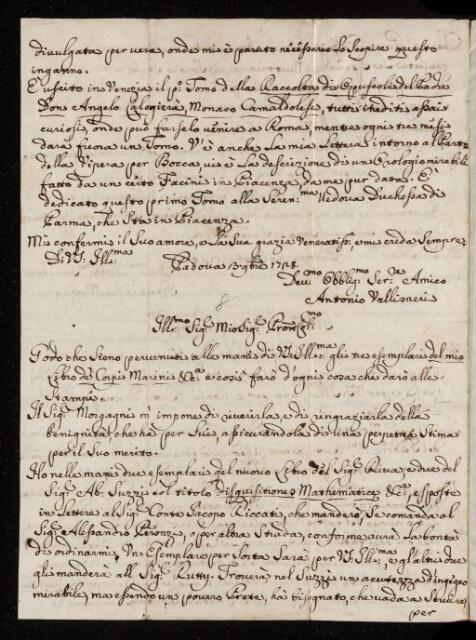 divulgata per vera, onde mi è paruto necessario lo scoprire questo
inganno.
È uscito in Venezia il p.º Tomo della Raccolta di Opuscoli del Padre
Don Angelo Calogierà, Monaco Camaldolese, tutti inediti, assai
curiosi, onde può farselo venire a Roma, mentre ogni tre mesi
darà fuora un Tomo. V'è anche la mia Lettera intorno al Parto
della Vipera per Bocca, vi è la descrizione di un Orologio mirabile
fatto da un certo Facini in Piacenza, da me pur data. È
dedicato questo primo Tomo alla Seren.ma Vedova Duchessa di
Parma, che sta in Piacenza.
Mi confermi il suo amore, e la sua grazia veneratiss.ma, e mi creda sempre
Di V. S. Ill.ma
Padova 3 9bre 1728.
Dev.mo Obblig.mo Ser.re Amico
Antonio Vallisneri
Ill.mo Sig.r Mio Sig.r Pron. Col.mo
Godo che sieno pervenuti alle mani di V. S. Ill.ma gli tre esemplari del mio
Libro de' Corpi Marini &c.a e così farò d'ogni cosa che darò alle
Stampe.
Il Sig.r Morgagni m'impone di riverirla, e di ringraziarla della
benignità, che hà per lui, assicurandola di una perpetua stima
per il suo merito.
Ho nelle mani due esemplari del nuovo Libro del Sig.r Riva, e due del
Sig.r Ab. Suzzi col titolo Disquisitiones Mathematicæ &c. esposte
in Lettere al Sig.r Conte Jacopo Riccati, che manderò, se comanda al
Sig.r Alessandro o per altra strada, conforme avrà la bontà
di ordinarmi. Un Esemplare per sorta sarà per V. S. Ill.ma e gl'altri due
gli manderà all Sig.r Rutty. Troverà nel Suzzi un acutezza d'ingegno
mirabile, ma essendo un povero Prete, hà bisognato, che vada a servire
per